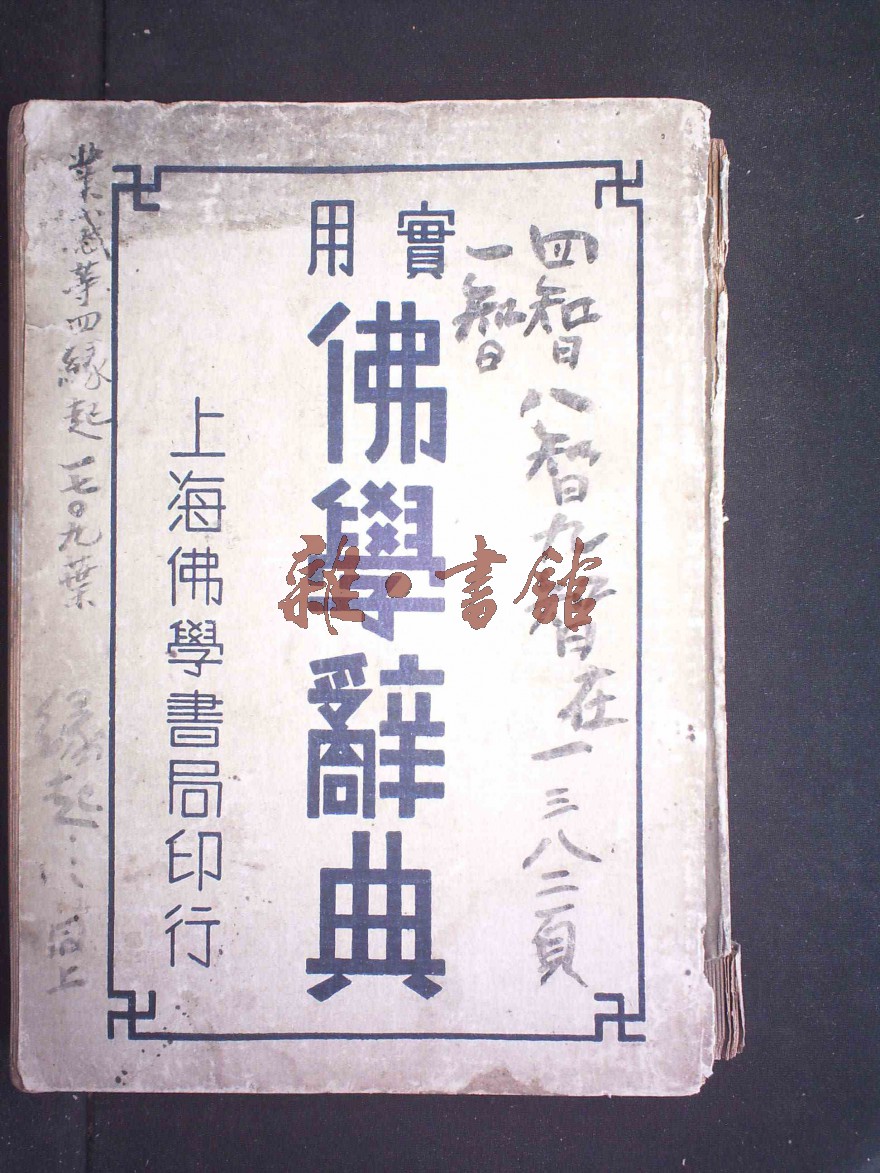 實用
佛學辭典
上海佛學書局印行
四智八智九智在一三八二頁
一智
業感等四緣起一七〇九葉
緣起⋯同上
雜·書館